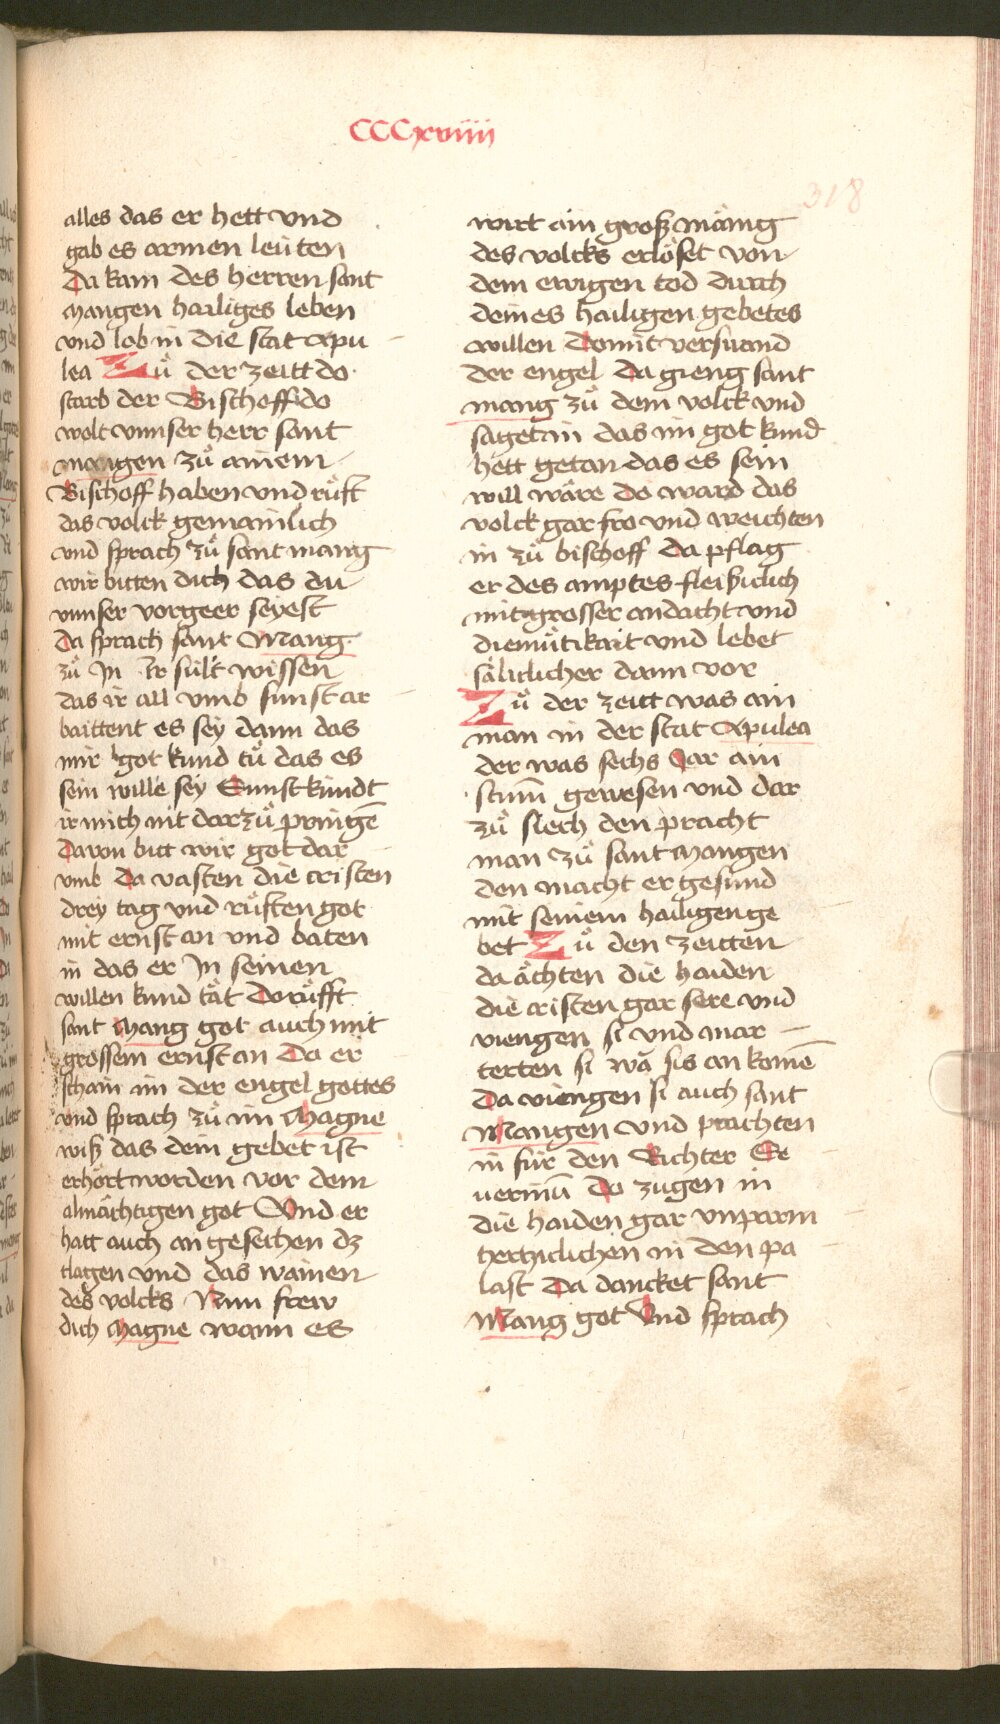 CCCxviiii
318
alles das er hett vnd
gab es armen leüten
Da kam des herren sant
Mangen hailiges leben
vnd lob in die stat Apu
lea Zů der zeitt do
starb der Bischoff do
wolt vnnser herr sant
mangen zů ainem
Bischoff haben vnd růft
das volck gemainlich
vnd sprach zů sant mang
wir bitten dich das du
vnnser vorgeer seyest
Da sprach sant Mang
zů In Ir sült wissen
das ir all vmb sunst ar
baittent es sey dann das
mir got kund tů das es
sein wille sey Sunst kündt
ir mich nit darzů pringē
Dauon bitt wir got dar
vmb Da vasten die cristen
drey tag vnd růften got
mit ernst an vnd baten
in das er In seinen
willen kund tät Do růfft
sant Mang got auch mit
grossem ernst an Da er
schain im der engel gottes
vnd sprach zů im Magne
wiß das dein gebet ist
erhört worden vor dem
almächtigen got Vnd er
hatt auch an gesechen dz
clagen vnd das wainen
des volcks Nun frew
dich Magne wann es
wirt ain groß mäing
des volcks erlöset von
dem ewigen tod durch
deines hailigen gebetes
willen Domit verswand
der engel Da gieng sant
mang zů dem volck vnd
saget in das im got kund
hett getan das es sein
will wäre Do ward das
volck gar fro vnd weichten
in zů bischoff Da pflag
er des amptes fleißiclich
mit grosser andacht vnd
diemütikait vnd lebet
säliclicher dann vor
Zů der zeitt was ain
man in der stat Apulea
der was sechs Jar ain
stumm gewesen vnd dar
zů siech den pracht
man zů sant Mangen
den macht er gesund
mit seinem hailigen ge
bet Zů den zeitten
da ächten die haiden
die cristen gar sere vnd
viengen si vnd mar
terten si wā sis an komē
Da viengen si auch sant
Mangen vnd prachten
in für den Richter Se
uerinū Do zugen in
die haiden gar vnparm
hertziclichen in den pa
last Da dancket sant
Mang got Vnd sprach